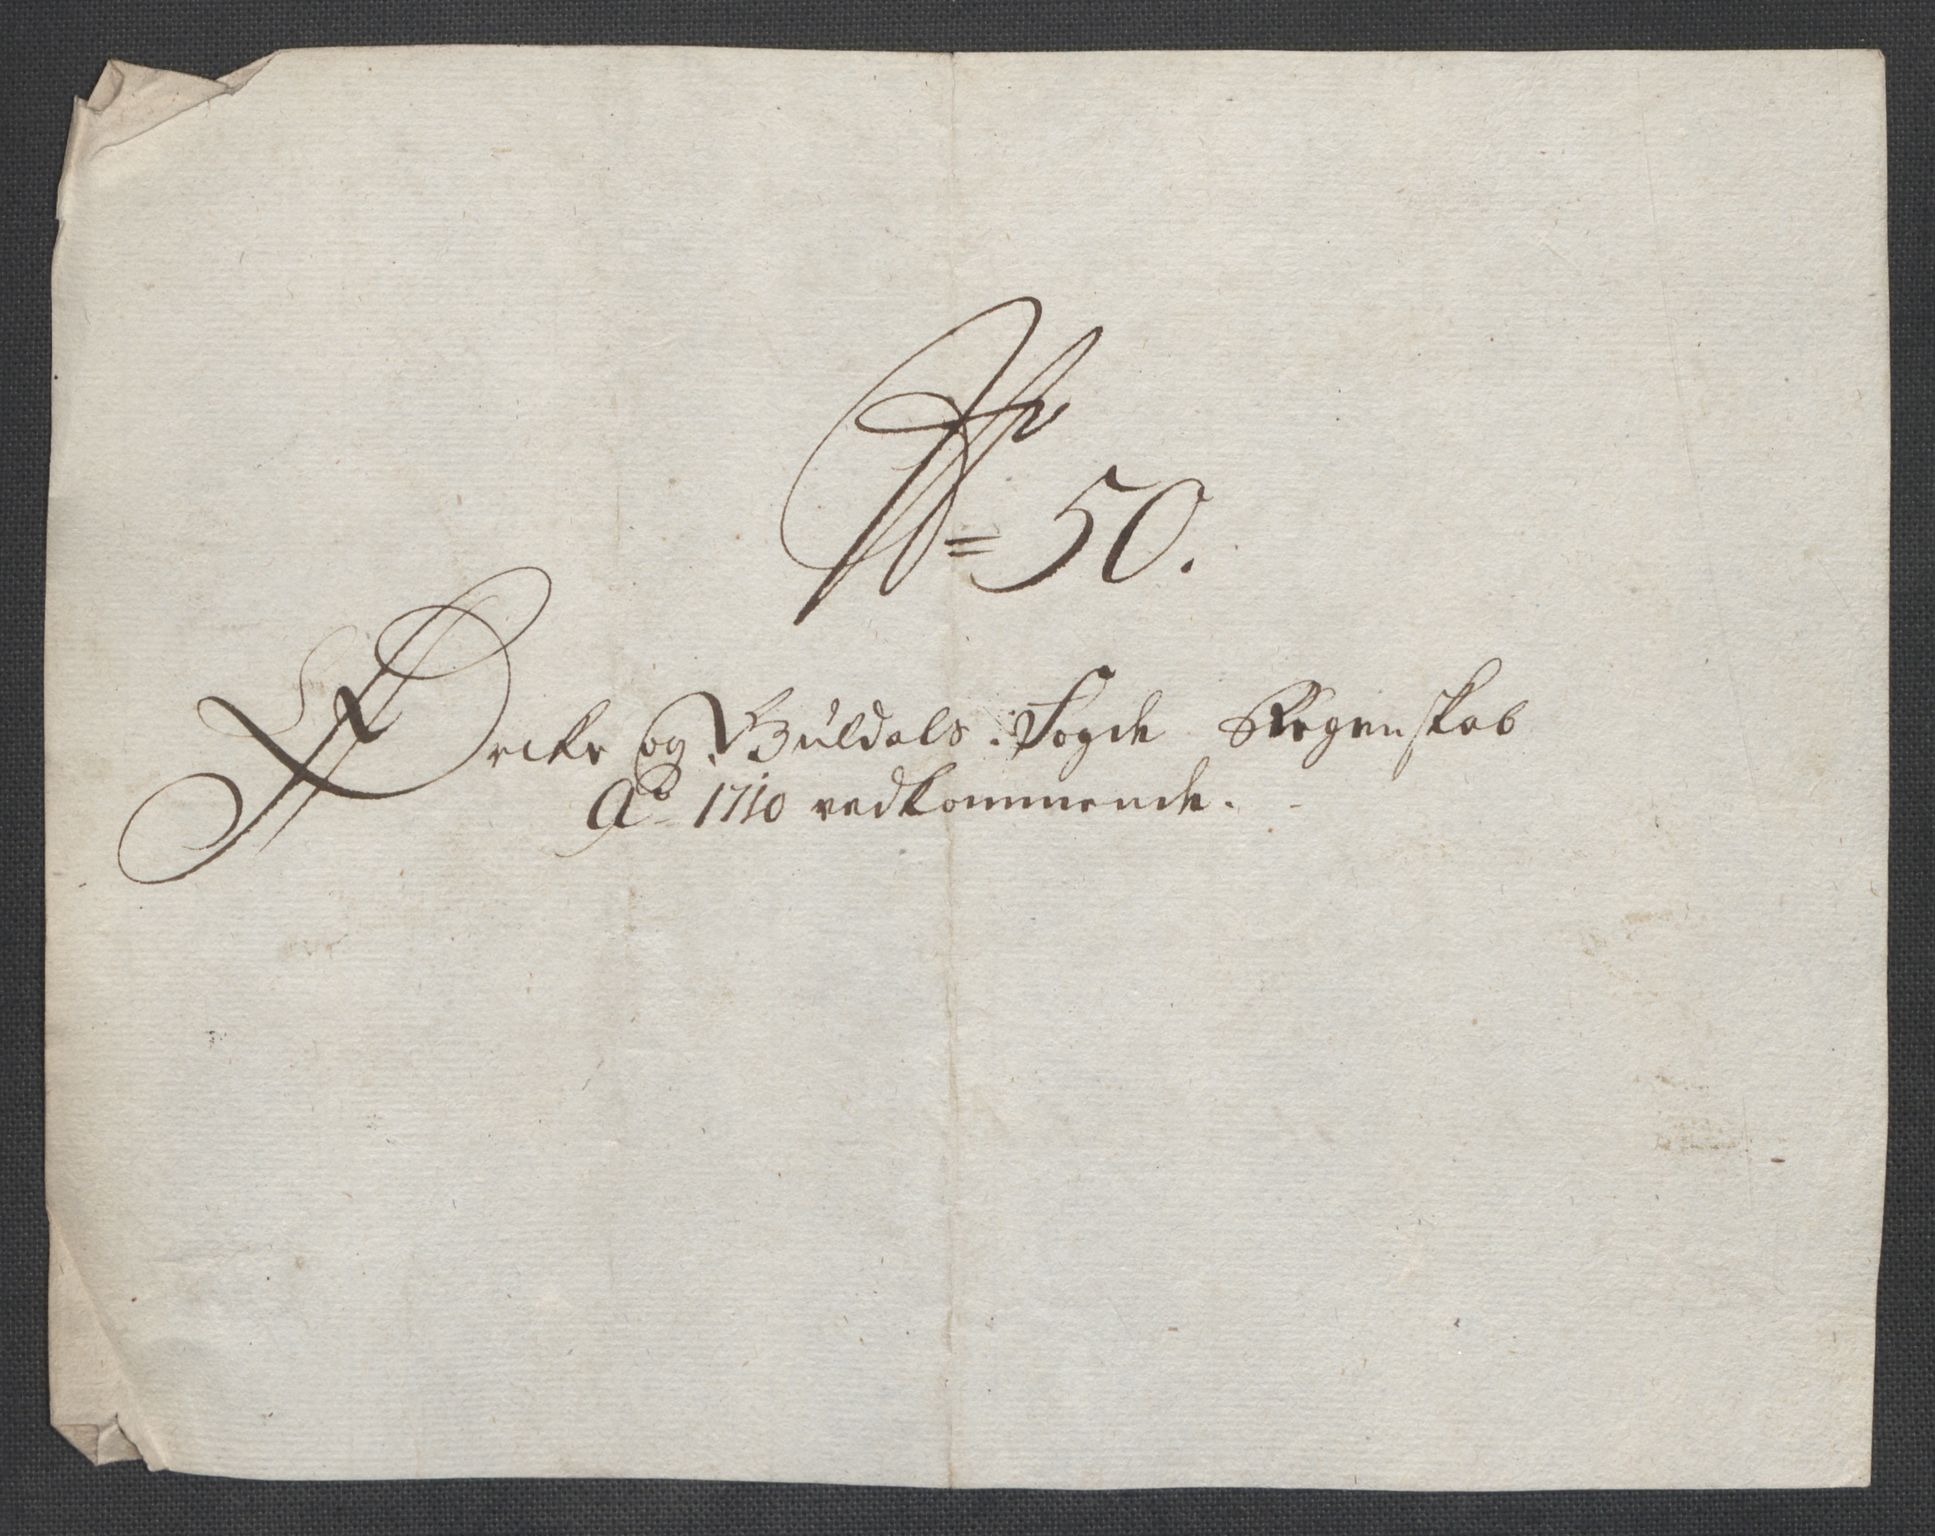 No 50.
Orcke og Guldals Fogde Regenskab
Ao 1710 vedkommende.